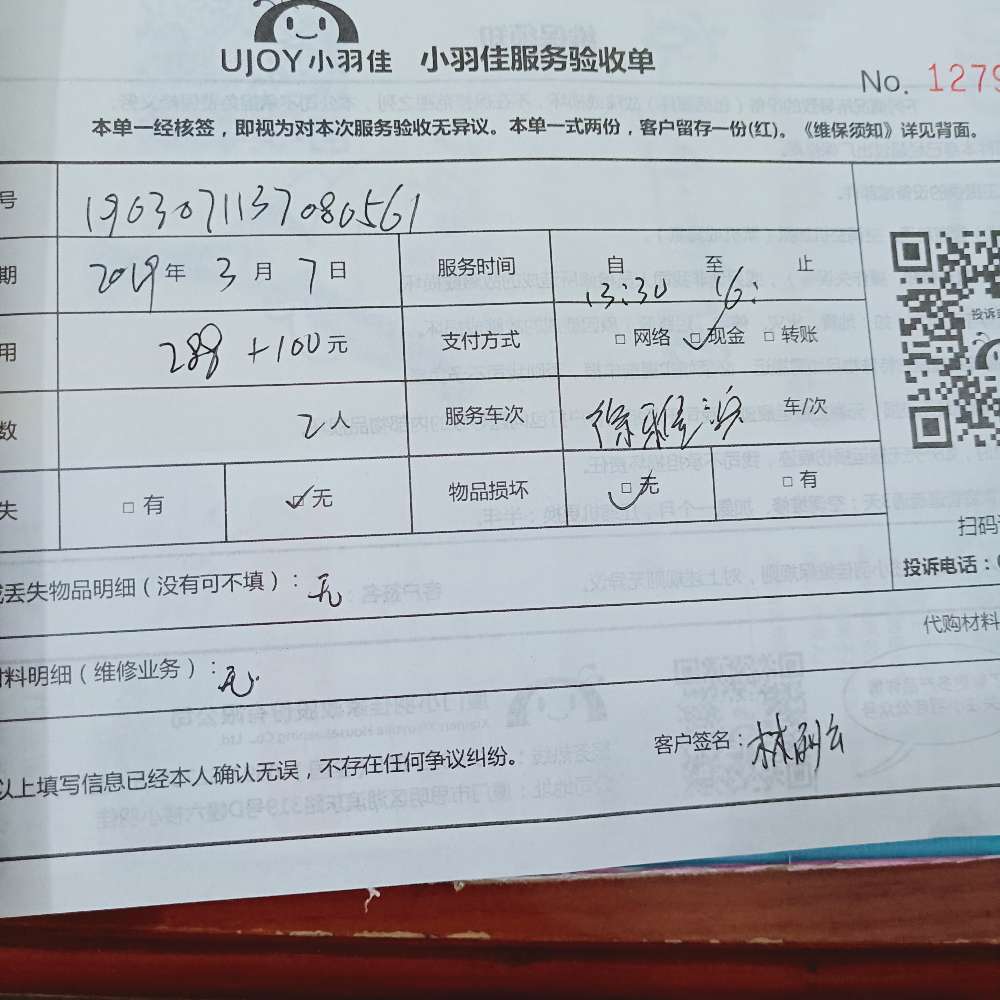 UJOY小羽佳 小羽佳服务验收单
No. 1279
本单一经核签，即视为对本次服务验收无异议。本单一式两份，客户留存一份(红)。《维保须知》详见背面。
号 190307113708056１
期 2019年 3月 7日 服务时间 自 13:30 至 16: 止
用 288+100元 支付方式 □ 网络 ☑ 现金 □ 转账
投诉
数 2人 服务车次 车/次
失 □ 有 ☑ 无 物品损坏 ☑ 无 □ 有
扫码
或丢失物品明细（没有可不填）：无
投诉电话：0
代购材料
材料明细（维修业务）：无
以上填写信息已经本人确认无误，不存在任何争议纠纷。 客户签名：